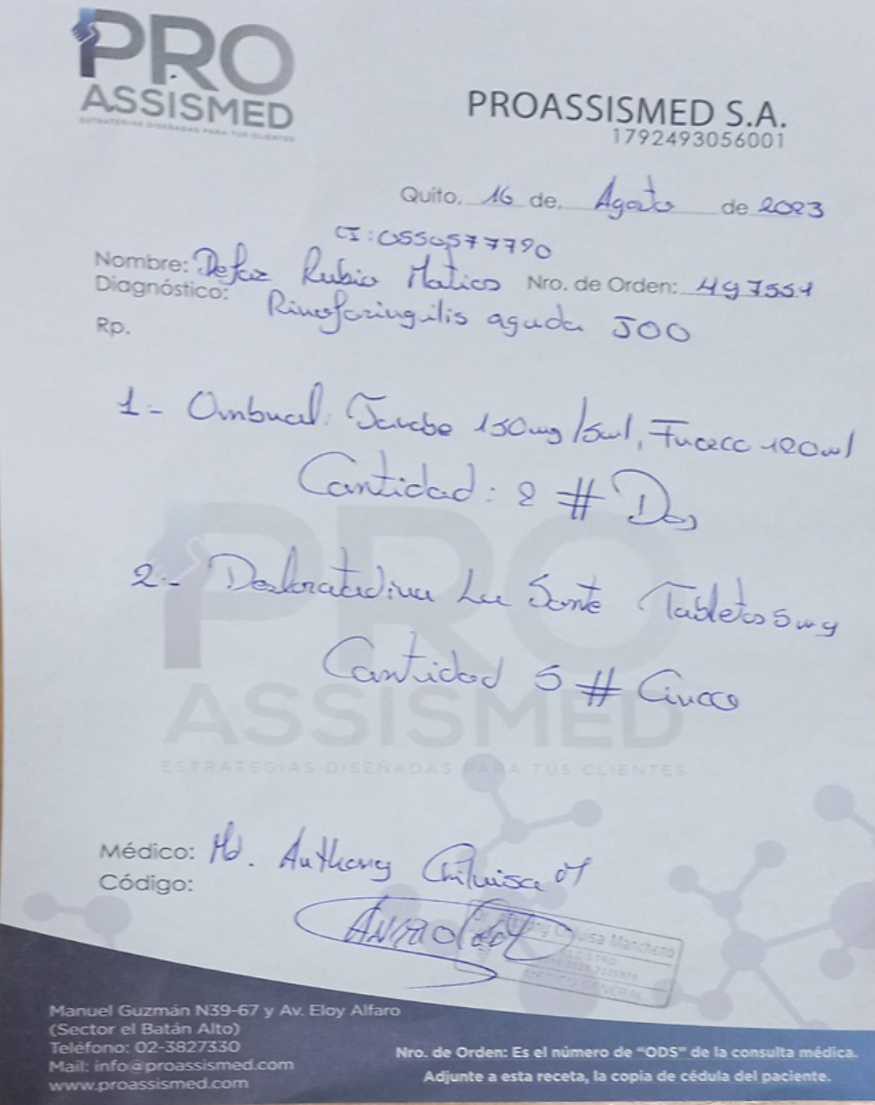 PRO
ASSISMED
ESTRATEGIAS DISEÑADAS PARA TUS CLIENTES
PROASSISMED S.A.
1792493056001
Quito, 16 de, Agosto de 2023
CI: 0550577790
Nombre: Defaz Rubio Matico Nro. de Orden: 497551
Diagnóstico: Rinofaringitis aguda J00
Rp.
1- Ambucal: Jarabe 150mg/5ml, Frasco 120ml
Cantidad: 2 # Dos
2.- Desloratadina La Sante Tabletas 5mg
Cantidad 5 # Cinco
PRO
ASSISMED
ESTRATEGIAS DISEÑADAS PARA TUS CLIENTES
Médico: Md. Anthony Chiluisa M
Código:
Chiluisa Mancheno
MEDICO GENERAL
Manuel Guzmán N39-67 y Av. Eloy Alfaro
(Sector el Batán Alto)
Teléfono: 02-3827330
Mail: info@proassismed.com
www.proassismed.com
Nro. de Orden: Es el número de "ODS" de la consulta médica.
Adjunte a esta receta, la copia de cédula del paciente.